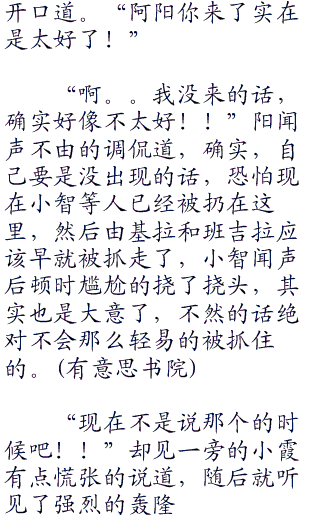 开口道。“阿阳你来了实在
是太好了！”
“啊。。我没来的话，
确实好像不太好！！”阳闻
声不由的调侃道，确实，自
己要是没出现的话，恐怕现
在小智等人已经被扔在这
里，然后由基拉和班吉拉应
该早就被抓走了，小智闻声
后顿时尴尬的挠了挠头，其
实也是大意了，不然的话绝
对不会那么轻易的被抓住
的。(有意思书院)
“现在不是说那个的时
候吧！！”却见一旁的小霞
有点慌张的说道，随后就听
见了强烈的轰隆